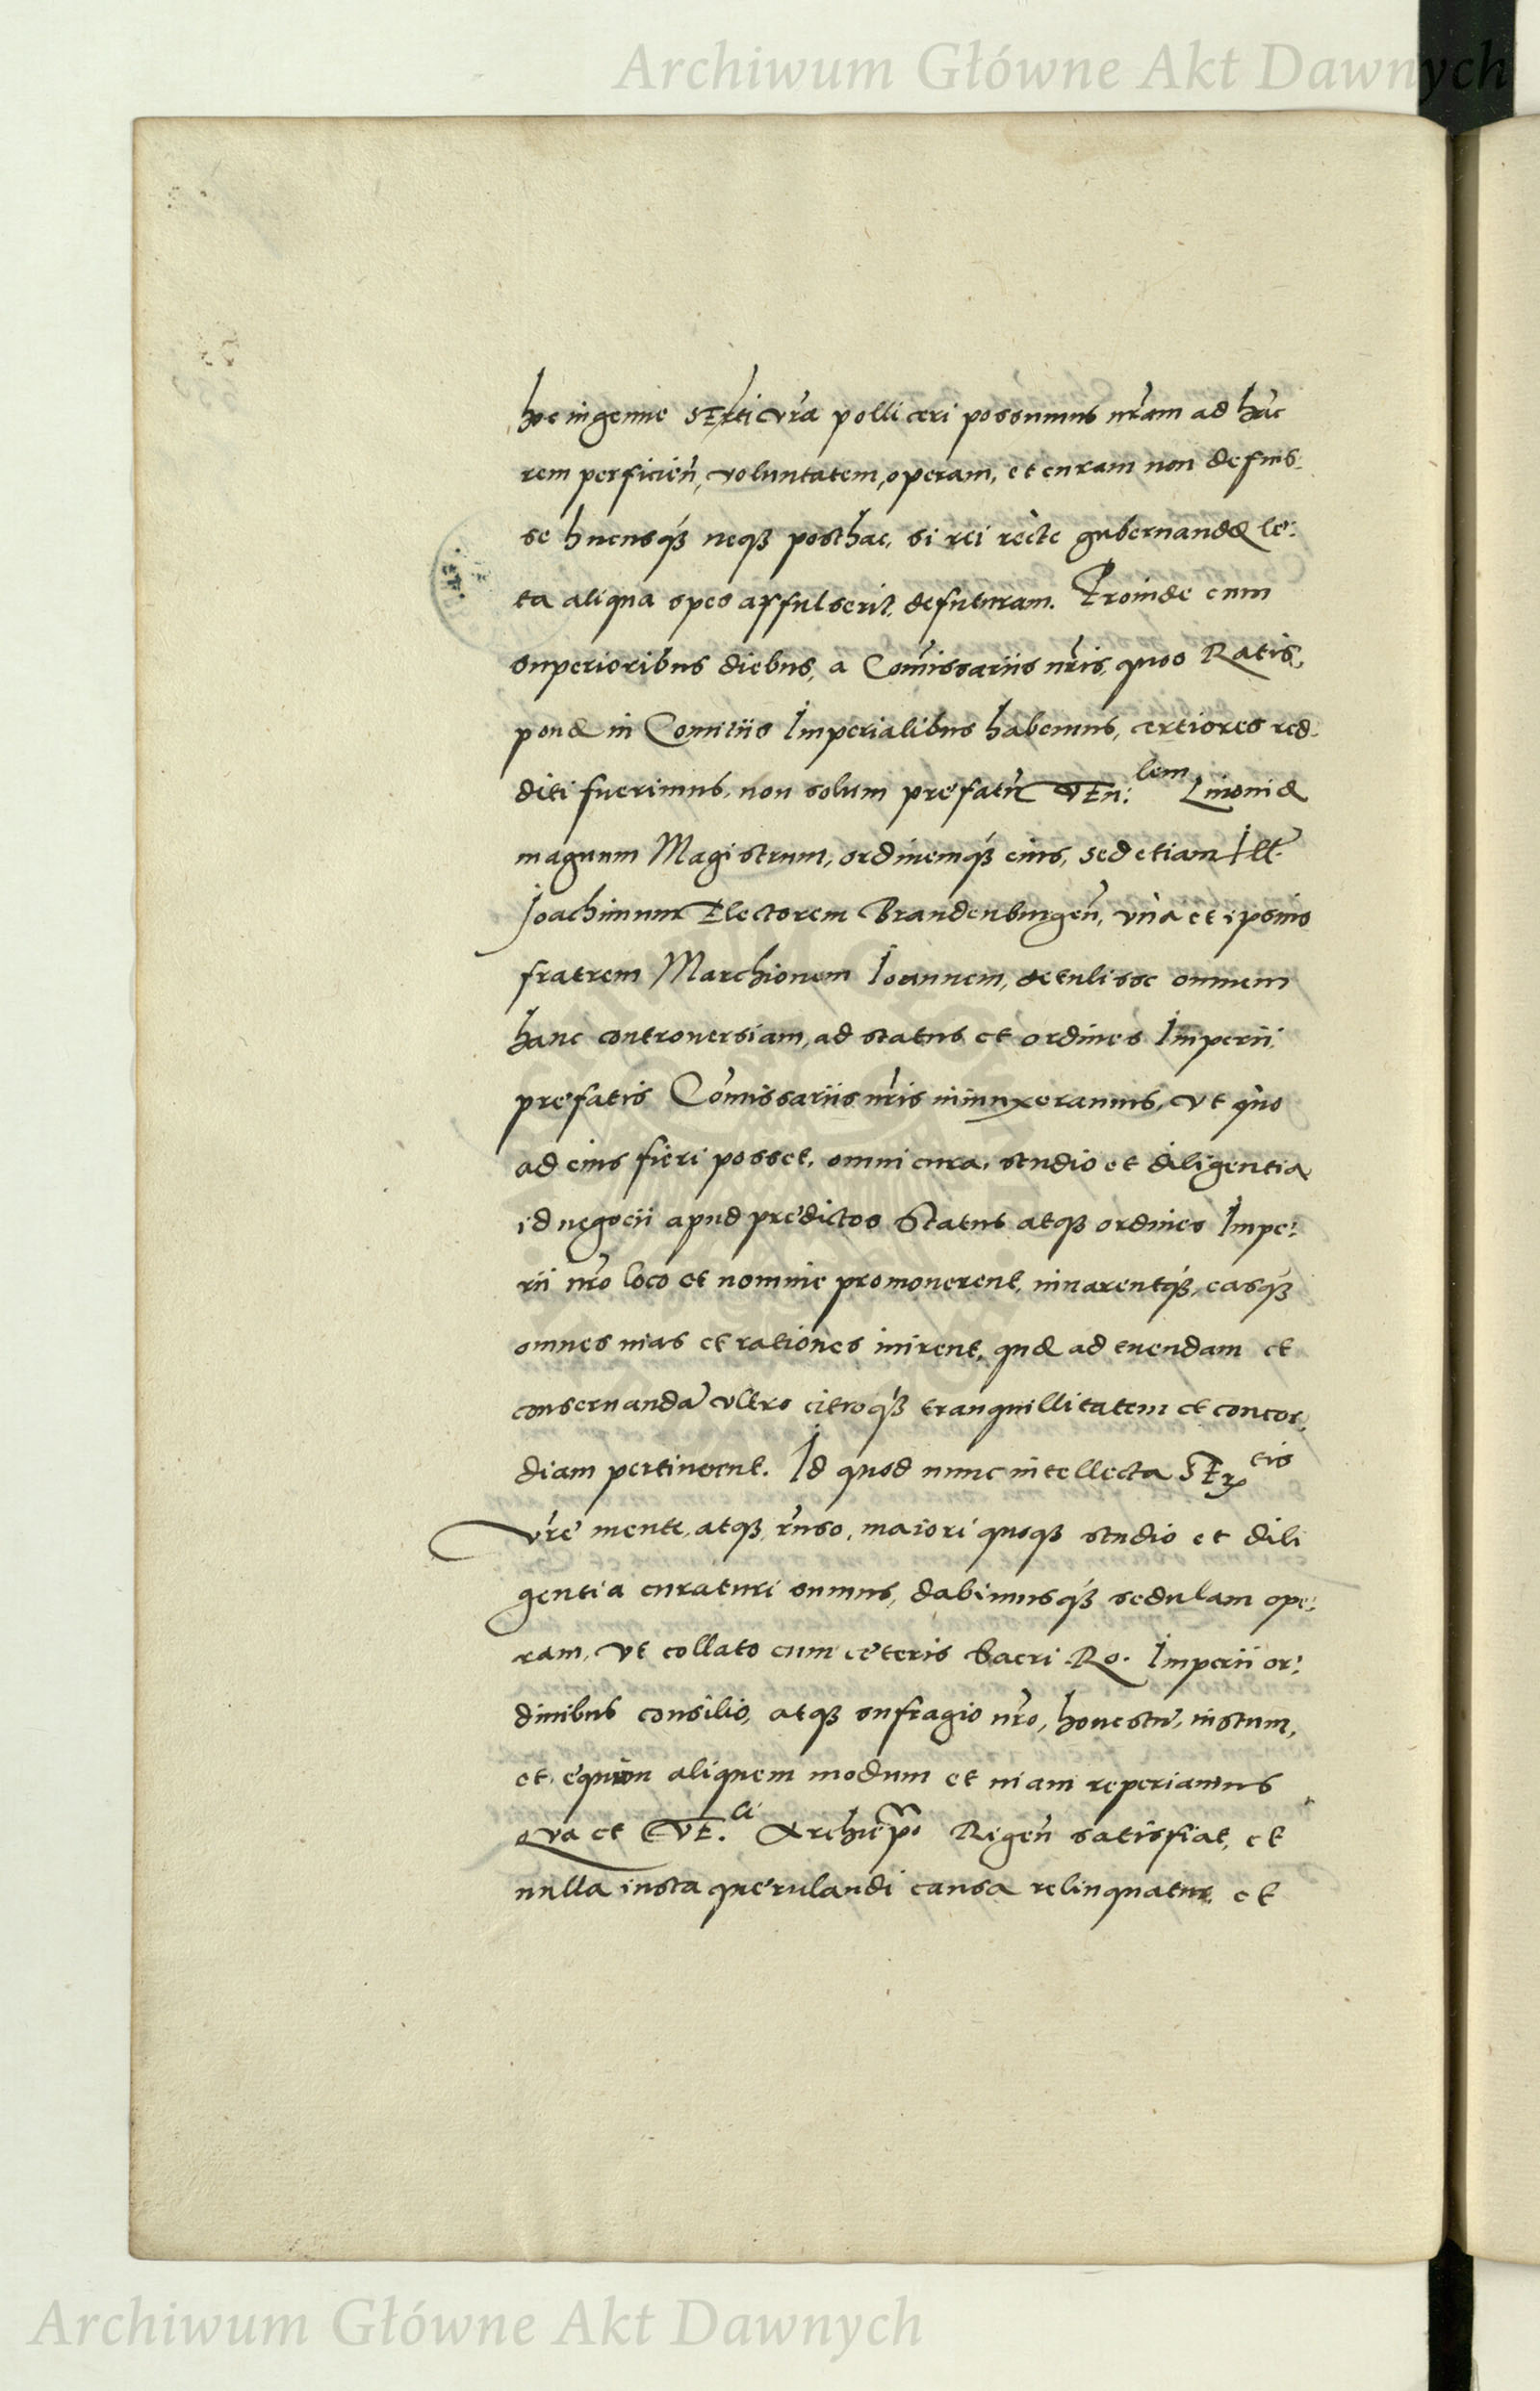 Archiwum Główne Akt Dawnych
hoc ingenue SErti vr̃a polliceri possumus nr̃am ad hãc
rem perficieñ, voluntatem, operam, et curam non defuis:
se hucusqꝫ neqꝫ posthac, si rei recte gubernandę lę:
ta aliqua spes affulserit, defuturam. Proinde cum
superioribus diebus, a Com̃issariis nr̃is, quos Ratis,
ponę in Comitiis Imperialibus habemus, certiores red:
diti fuerimus, non solum pręfatũ VEn:lem Liuonię
magnum Magistrum, ordinemqꝫ eius, sed etiam Ill:
Joachimum Electorem Brandenburgeñ, vna et ipsius
fratrem Marchionem Ioannem, detulisse omnem
hanc controuersiam, ad status et ordines Imperii,
pręfatis Com̃issariis nr̃is iniunxeramus, vt quo
ad eius fieri posset, omni cura, studio et diligentia
id negocii apud prędictos Status atqꝫ ordines Impe:
rii nr̃o loco et nomine promouerent, iuuarentqꝫ, easqꝫ
omnes uias et rationes inirent, quę ad tuendam et
conseruandã vltro citroqꝫ tranquillitatem et concor,
diam pertinerent. Id quod nunc intellecta SErtis
vr̃ę mente, atqꝫ r̃nso, maiori quoqꝫ studio et dili
gentia curaturi sumus, dabimusqꝫ sedulam ope:
ram, vt collato cum cęteris Sacri Ro. Imperii or:
dinibus consilio, atqꝫ sufragio nr̃o, honestũ, iustum,
et ęquum aliquem modum et uiam reperiamus
Qua et VE.li Archiep̃o Rigeñ satisfiat, et
nulla iusta quęrulandi causa relinquatur et
Archiwum Główne Akt Dawnych